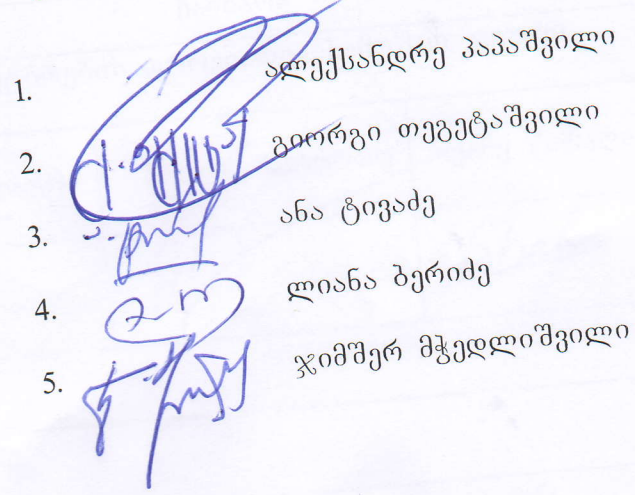 1. ალექსანდრე პაპაშვილი
2. გიორგი თეგეტაშვილი
3. ანა ტივაძე
4. ლიანა ბერიძე
5. ჯიმშერ მჭედლიშვილი